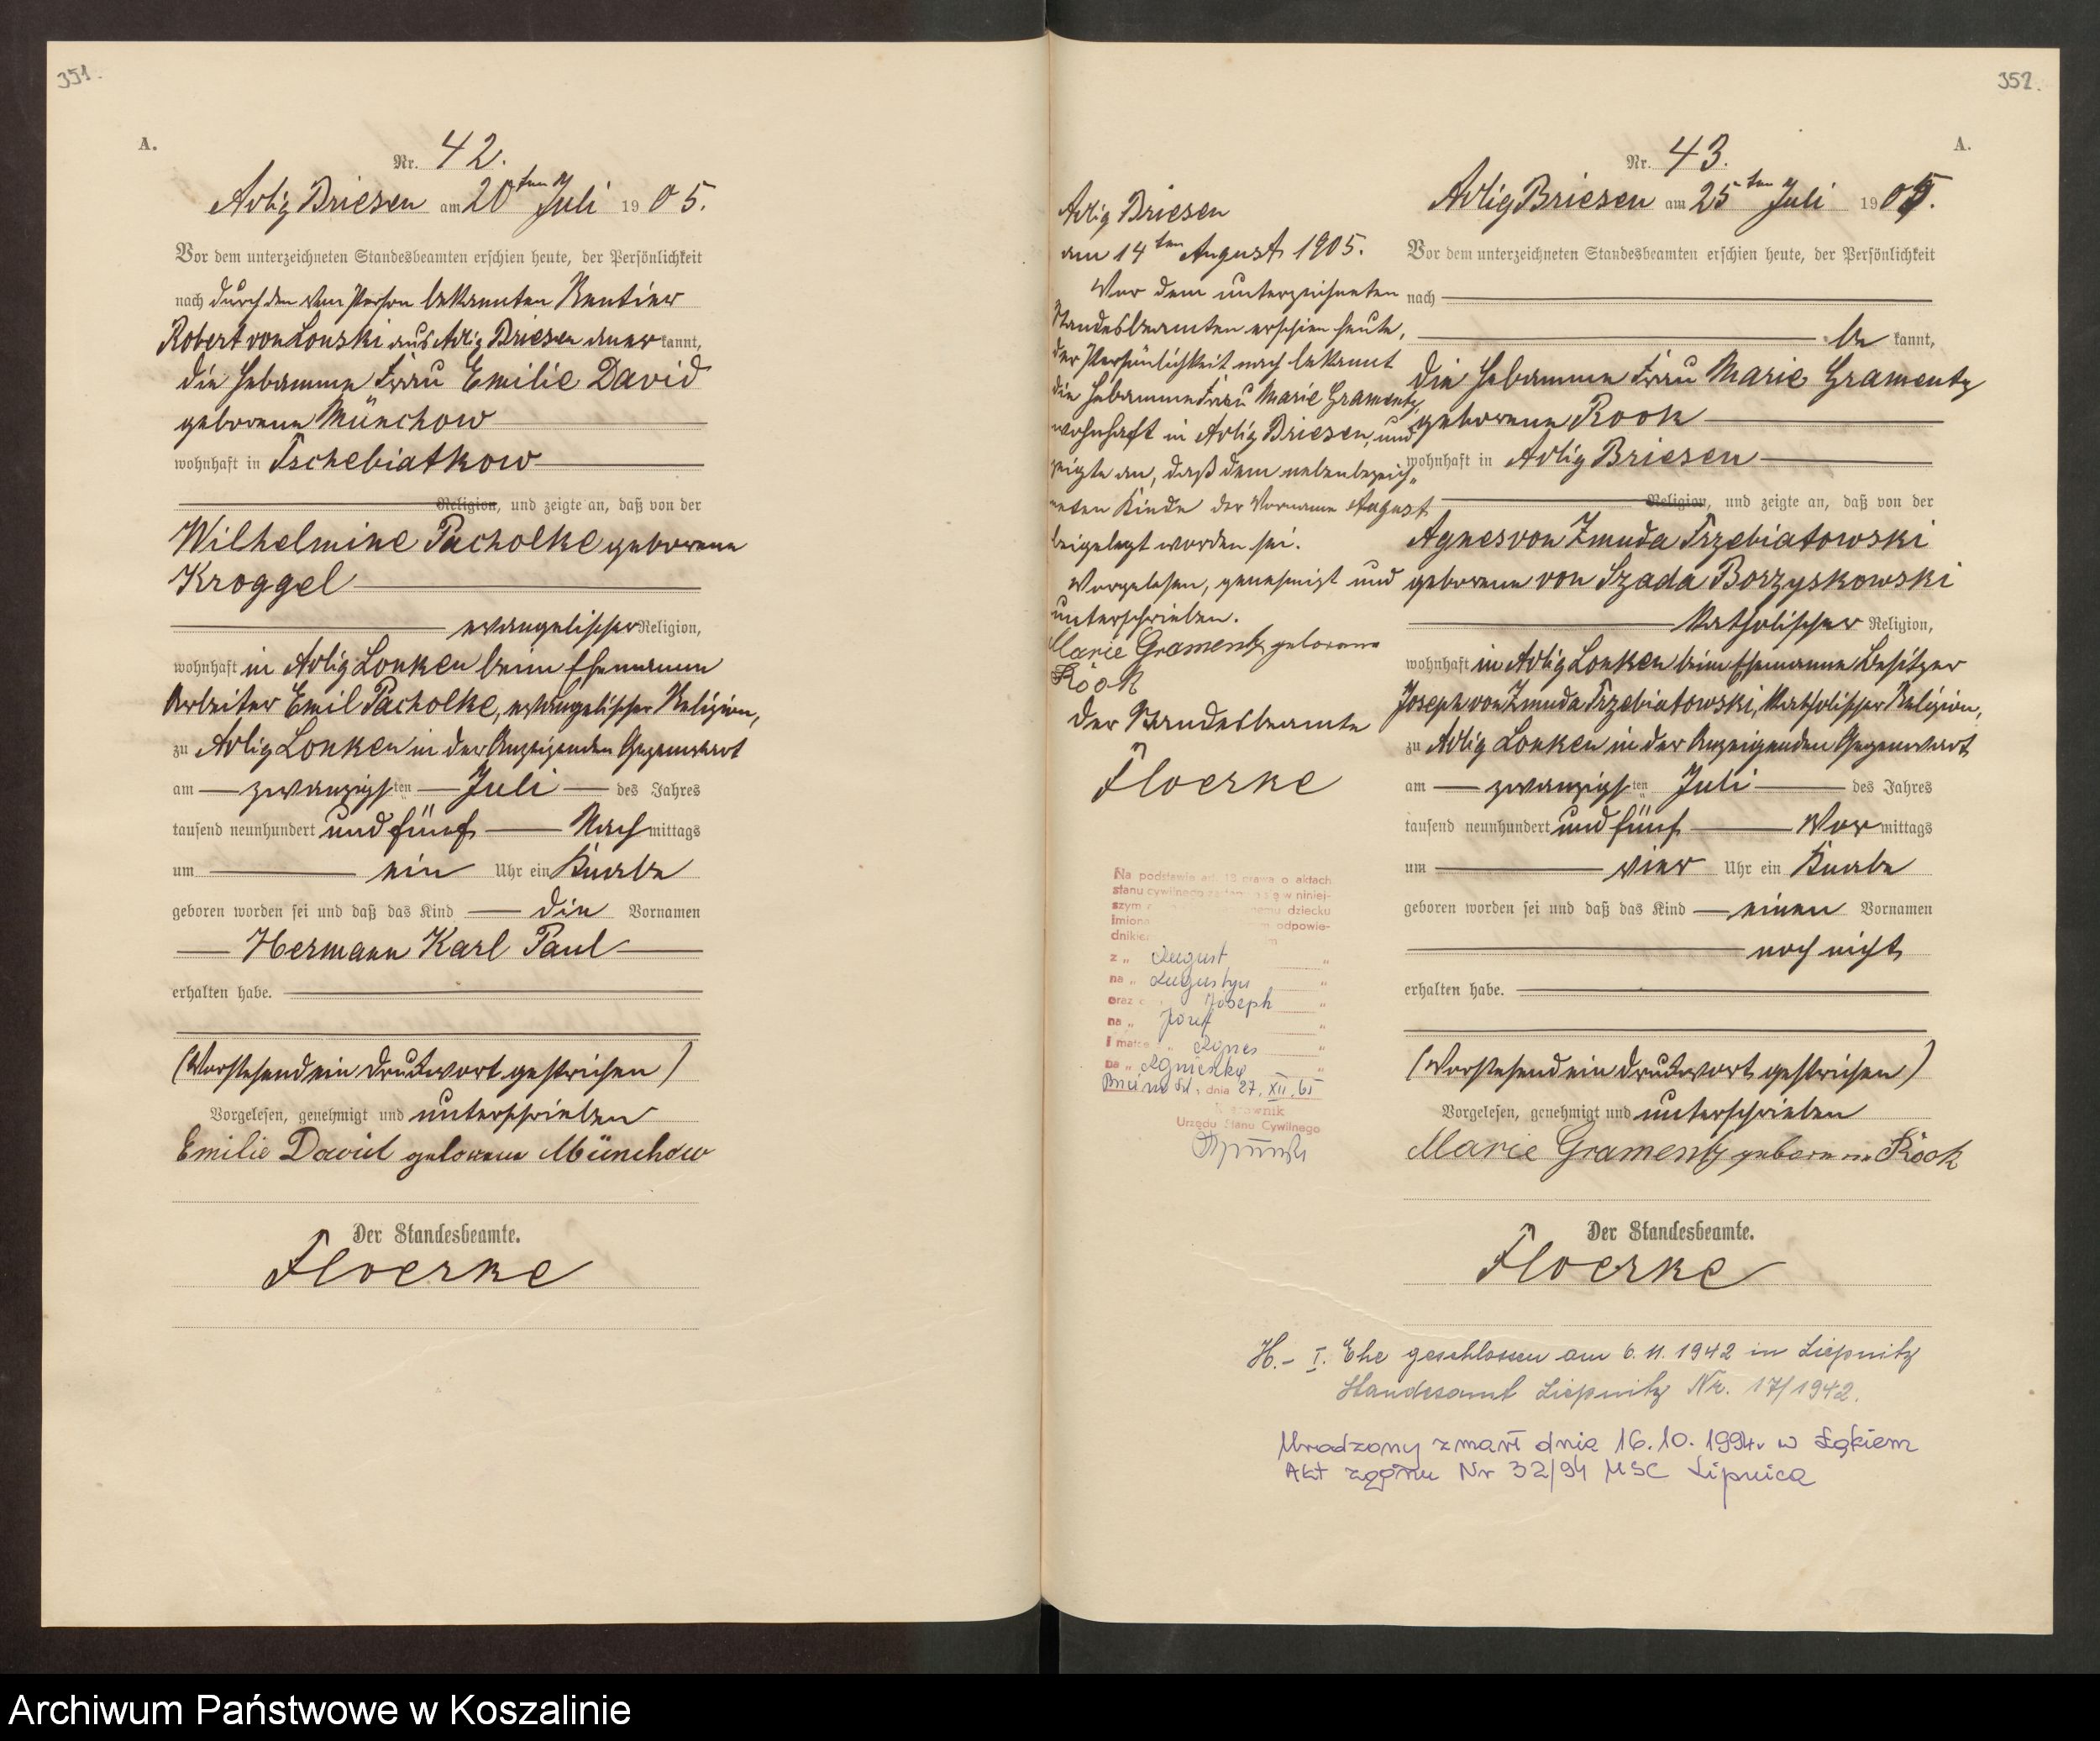 351.
A.
Nr. 42.
Adlig Briesen am 20ten Juli 1905.
Vor dem unterzeichneten Standesbeamten erschien heute, der Persönlichkeit
nach durch den von Person bekannten Rentier
Robert von Lonski aus Adlig Briesen anerkannt,
die Hebamme Frau Emilie David
geborene Münchow
wohnhaft in Tschebiatkow
Religion, und zeigte an, daß von der
Wilhelmine Pacholke geborene
Kroggel
evangelischer Religion,
wohnhaft in Adlig Lonken beim Ehemann
Arbeiter Emil Pacholke, evangelischer Religion,
zu Adlig Lonken in der Anzeigenden Gegenwart
am zwanzigsten Juli des Jahres
tausend neunhundert und fünf Nachmittags
um ein Uhr ein Knabe
geboren worden sei und daß das Kind die Vornamen
Hermann Karl Paul
erhalten habe.
(Vorstehend ein Druckwort gestrichen)
Vorgelesen, genehmigt und unterschrieben
Emilie David geborene Münchow
Der Standesbeamte.
Floerke
352.
A.
Nr. 43.
Adlig Briesen am 25ten Juli 1905.
Vor dem unterzeichneten Standesbeamten erschien heute, der Persönlichkeit
nach
bekannt,
die Hebamme Frau Marie Gramentz
geborene Rook
wohnhaft in Adlig Briesen
Religion, und zeigte an, daß von der
Agnes von Zmuda Trzebiatowski
geborene von Szada Borzyskowski
katholischer Religion,
wohnhaft in Adlig Lonken beim Ehemanne Besitzer
Joseph von Zmuda Trzebiatowski, katholischer Religion,
zu Adlig Lonken in der Anzeigenden Gegenwart
am zwanzigsten Juli des Jahres
tausend neunhundert und fünf Vormittags
um vier Uhr ein Knabe
geboren worden sei und daß das Kind einen Vornamen
noch nicht
erhalten habe.
(Vorstehend ein Druckwort gestrichen)
Vorgelesen, genehmigt und unterschrieben
Marie Gramentz geborene Röok
Der Standesbeamte.
Floerke
Adlig Briesen
am 14ten August 1905.
Vor dem unterzeichneten
Standesbeamten erschien heute,
der Persönlichkeit nach bekannt
die Hebamme Frau Marie Gramentz,
wohnhaft in Adlig Briesen, und
zeigte an, daß dem nebenbezeich-
neten Kinde der Vorname August
beigelegt worden sei.
Vorgelesen, genehmigt und
unterschrieben.
Marie Gramentz geborene
Röok
Der Standesbeamte
Floerke
Na podstawie art. 19 prawa o aktach
stanu cywilnego się w niniej-
szym nemu dziecku
imiona odpowie-
dnikiem
z „ August „
na „ Augustyn „
oraz Joseph „
na „ Józef „
i matce Agnes „
na „ Agnieszka „
dnia 27. XII. 65
Kierownik
Urzędu Stanu Cywilnego
H.- I. Ehe geschlossen am 6.11.1942 in Liepnitz
Standesamt Liepnitz Nr. 17/1942.
Urodzony zmarł dnia 16.10.1994r w Łąkiem
Akt zgonu Nr 32/94 USC Lipnica
Archiwum Państwowe w Koszalinie